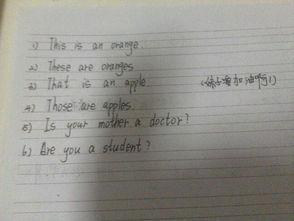 1) This is an orange.
2) These are oranges
3) That is an apple
4) Those are apples.
5) Is your mother a doctor?
6) Are you a student?